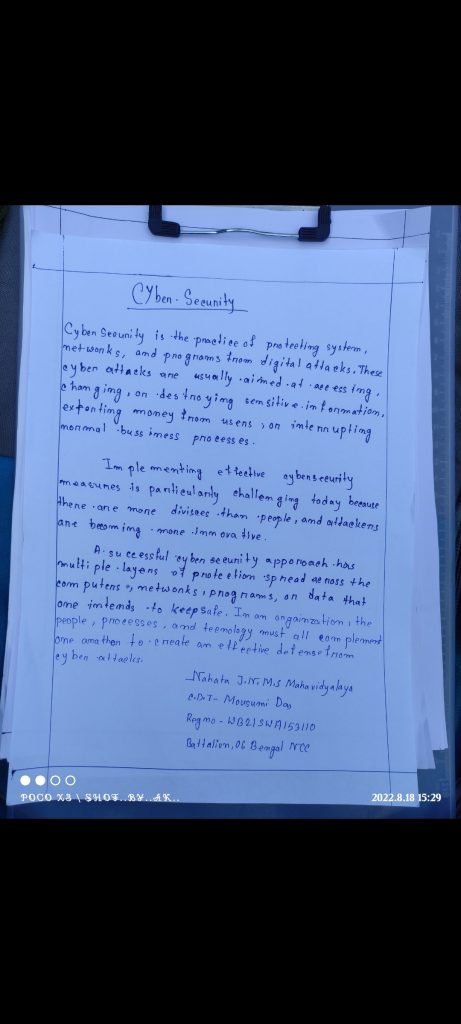 Cyber Security
Cyber Security is the practice of protecting system,
networks, and programs from digital attacks. These
cyber attacks are usually aimed at accessing,
changing, or destroying sensitive information,
extorting money from users, or interrupting
normal bussiness processes.
Implementing effective cybersecurity
measures is particularly challenging today because
there are more divisces than people, and attackers
are becoming more innovative.
A successful cyber security apporoach has
multiple layers of protection spread across the
computers, networks, programs, or data that
one intends to keep safe. In an organization, the
people, processes, and tecnology must all complement
one another to create an effective defense from
cyber attacks.
Nahata J.N.M.S Mahavidyalaya
C.D.T- Mousumi Das
Reg no - WB21SWA153110
Battalion, 06 Bengal NCC
POCO X3 \ SHOT..BY..AK..
2022.8.18 15:29